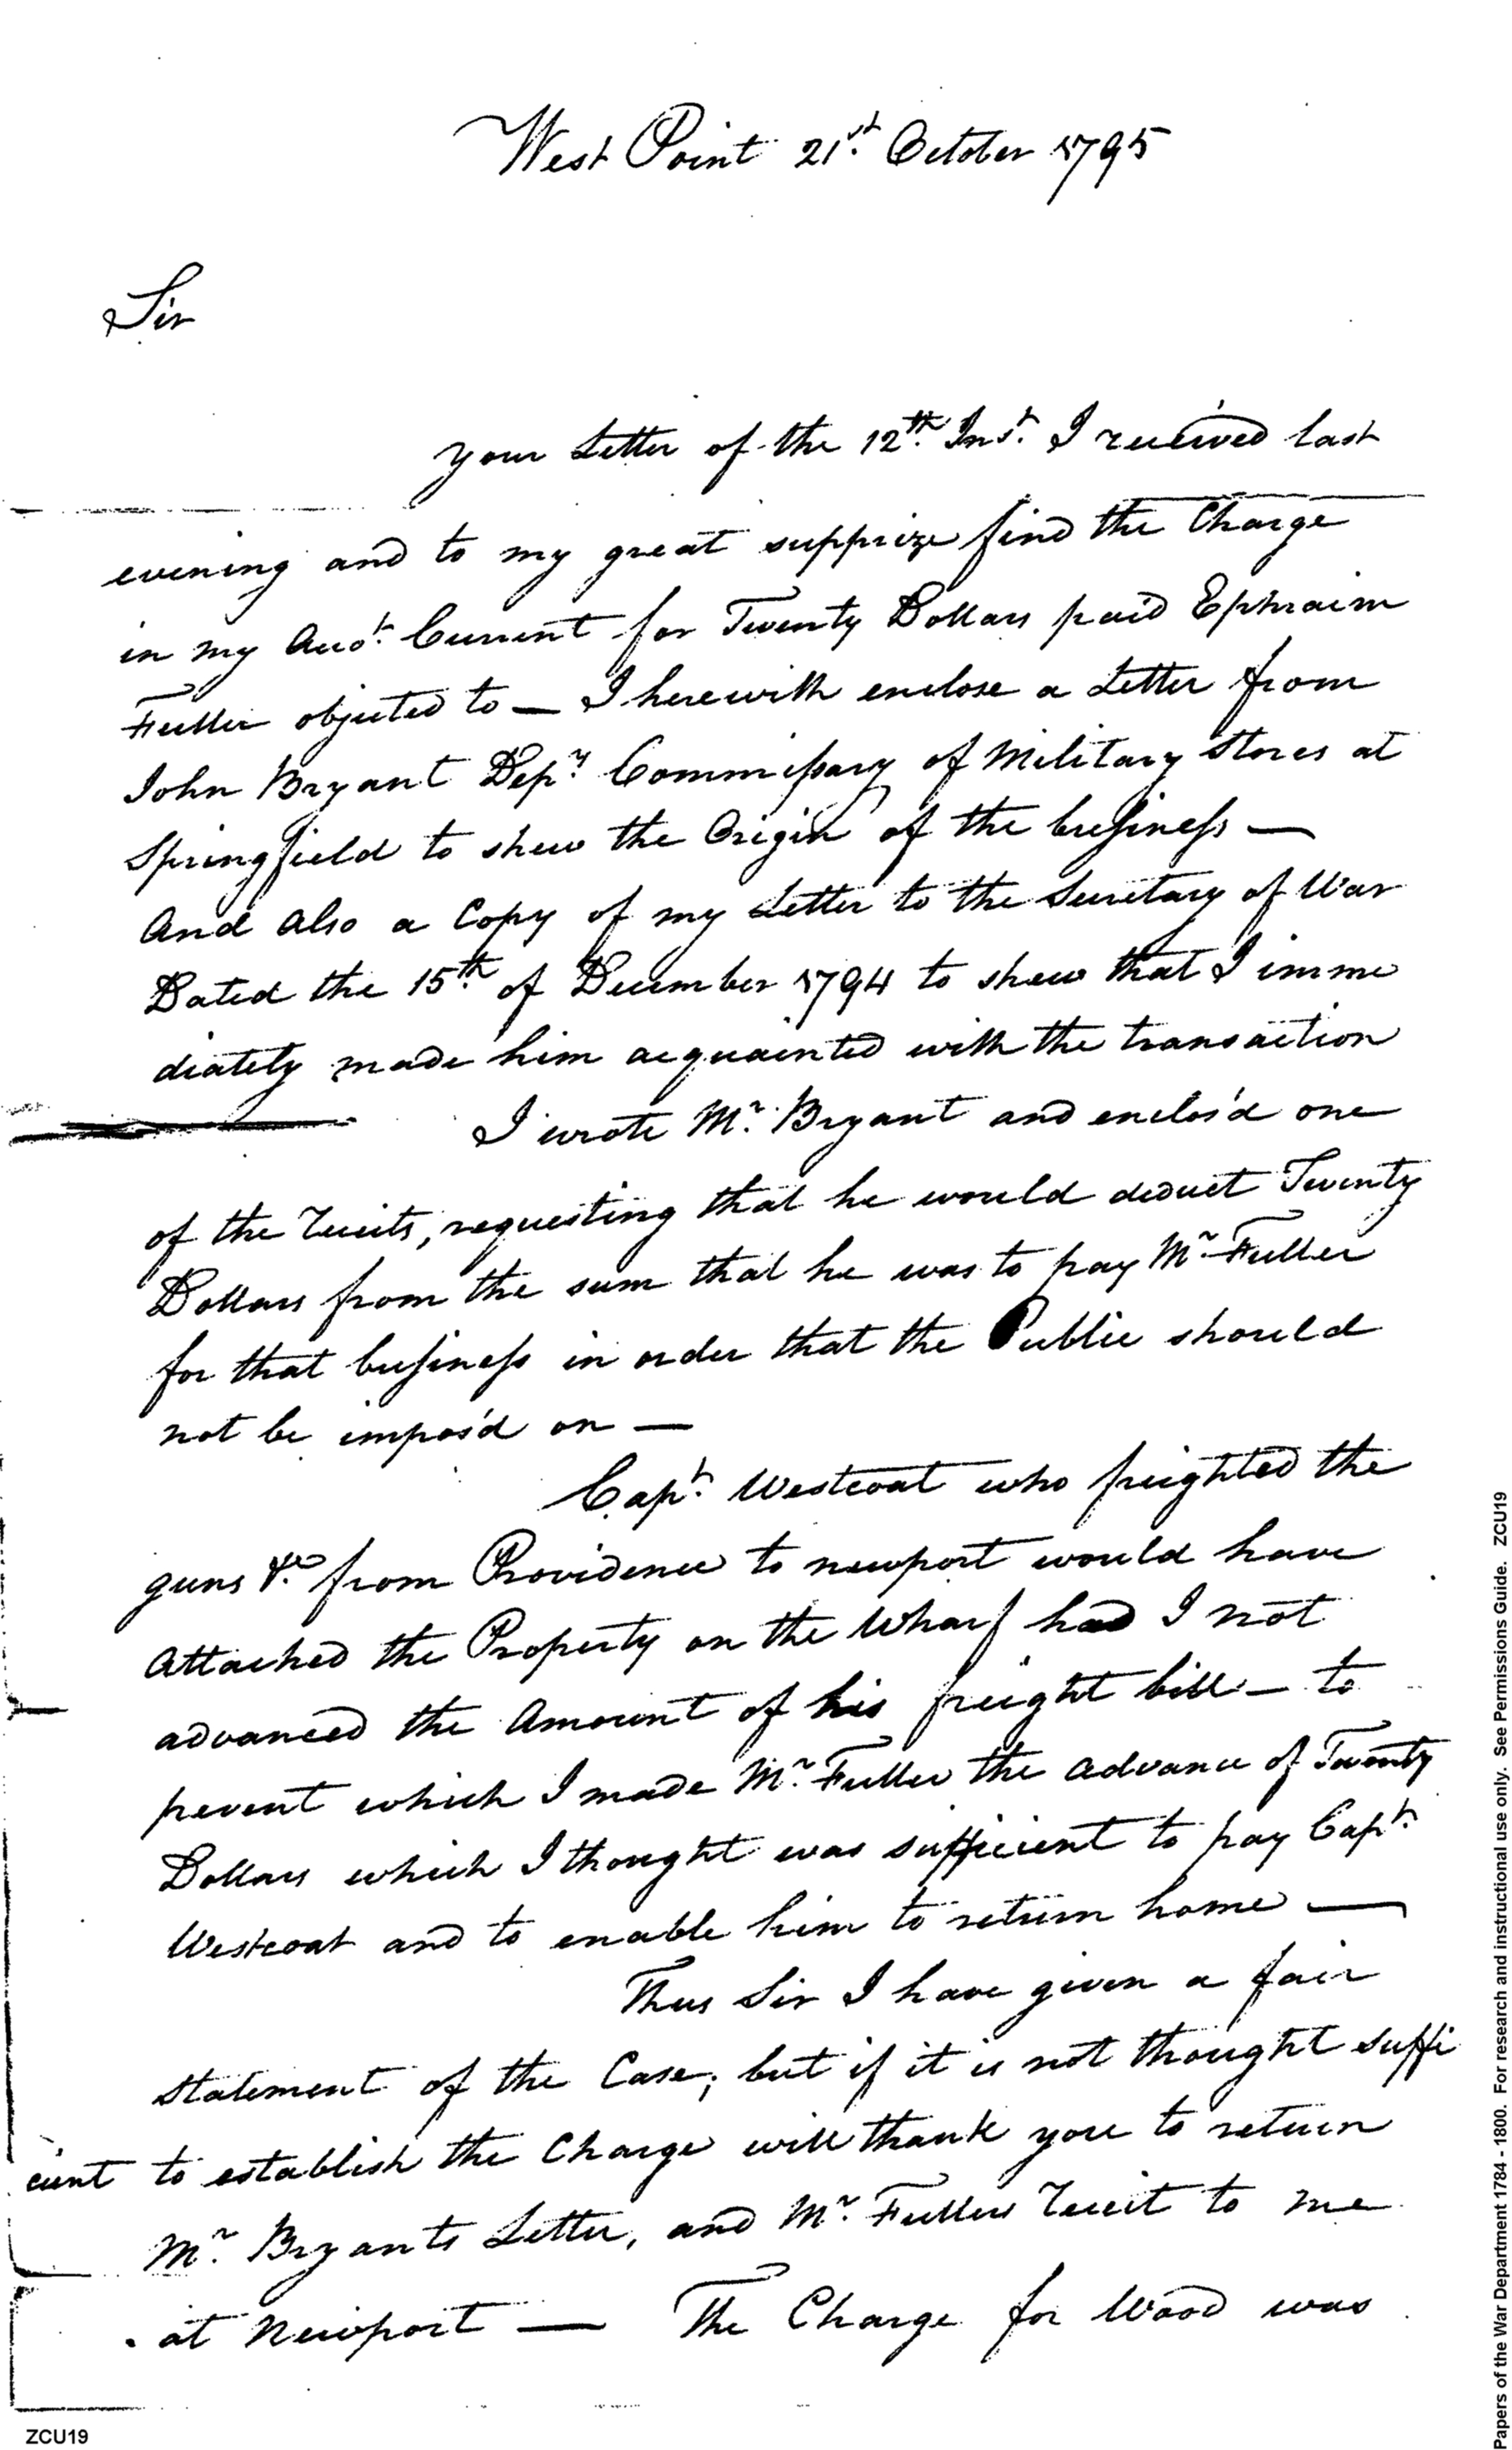 West Point 21st October 1795
Sir
your Letter of the 12th Inst I received last
evening and to my great supprize find the Charge
in my Accot Current for Twenty Dollars paid Ephraim
Fuller objected to — I herewith enclose a Letter from
John Bryant Depy Commissary of Military Stores at
Springfield to shew the Origin of the business —
And also a Copy of my Letter to the Secretary of War
Dated the 15th of December 1794 to shew that I imme
diately made him acquainted with the transaction
I wrote Mr Bryant and enclos'd one
of the receits, requesting that he would deduct Twenty
Dollars from the sum that he was to pay Mr Fuller
for that business in order that the Public should
not be impos'd on —
Capt Westcoat who freighted the
guns &c from Providence to newport would have
Attached the Property on the Wharf had I not
advanced the Amount of his freight bill — to
prevent which I made Mr Fuller the advance of Twenty
Dollars which I thought was sufficient to pay Capt
Westcoat and to enable him to return home —
Thus Sir I have given a fair
statement of the Case; but if it is not thought suffi
cient to establish the Charge will thank you to return
Mr Bryants Letter, and Mr Fullers receit to me
at Newport — The Charge for Wood was
ZCU19
Papers of the War Department 1784 - 1800. For research and instructional use only. See Permissions Guide. ZCU19